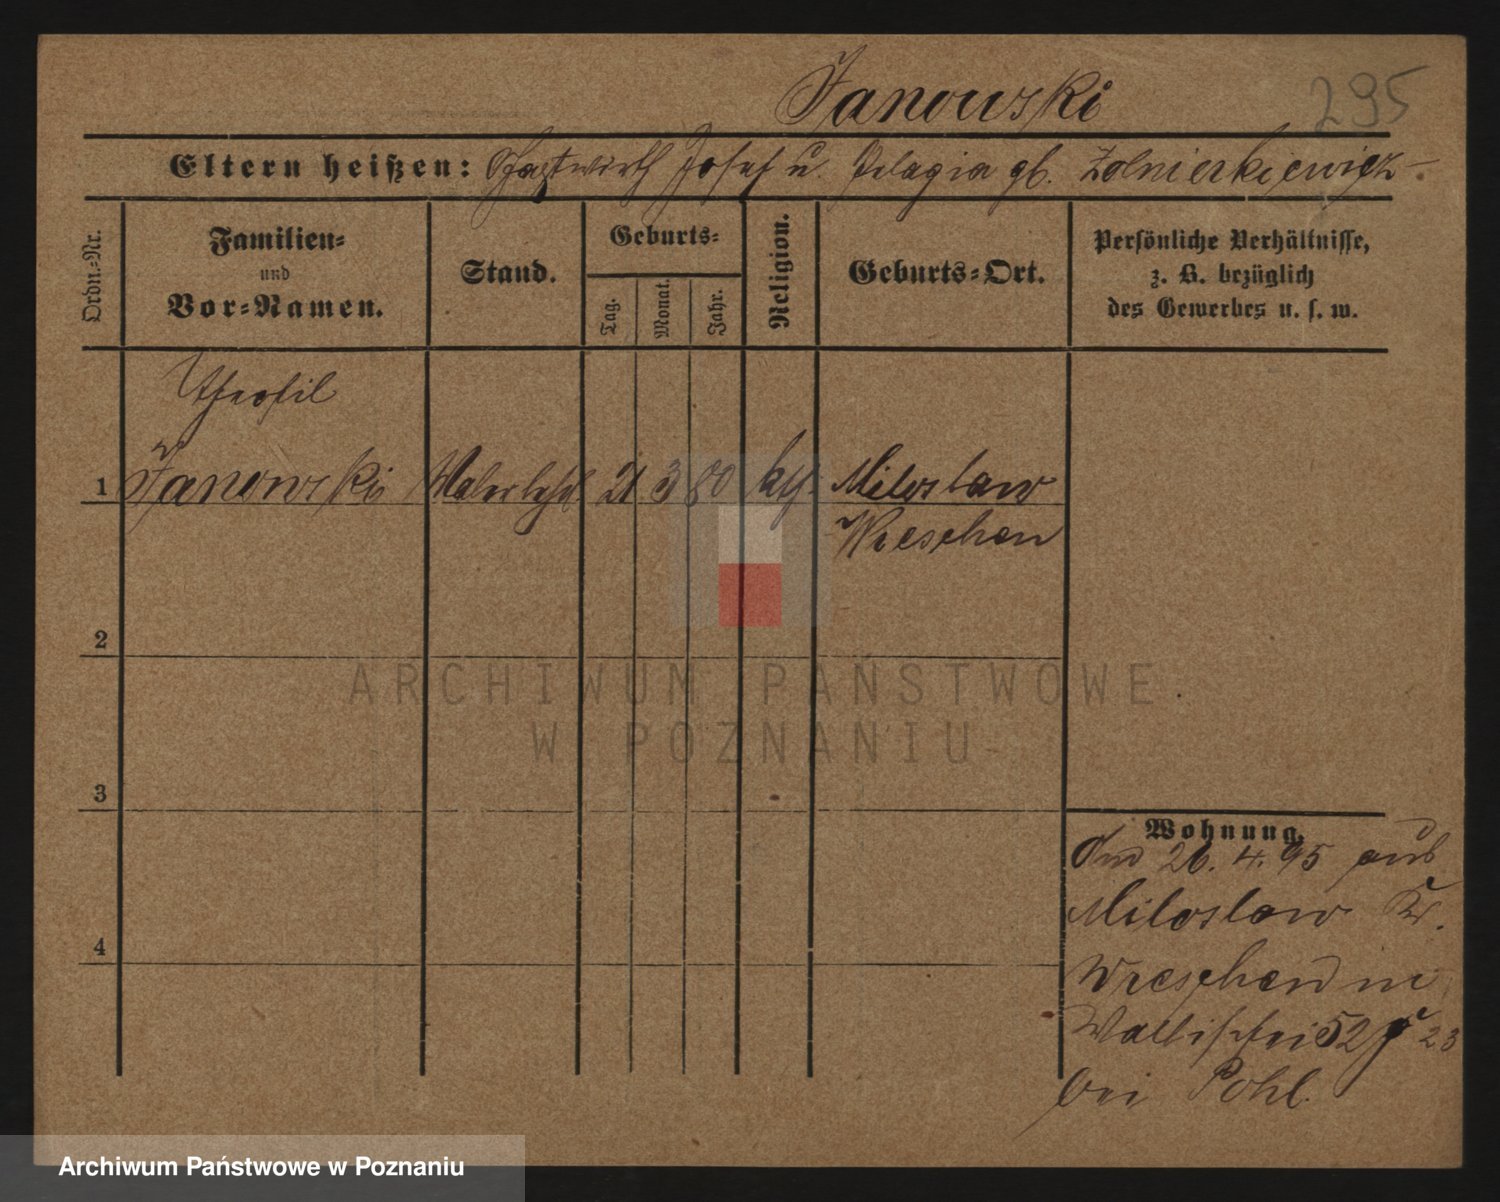 Janowski
295
Eltern heißen: Gastwirth Josef u. Pelagia gb. Zolnierkiewicz.
Ordn.-Nr.
Familien-
und
Vor-Namen.
Stand.
Geburts-
Tag.
Monat.
Jahr.
Religion.
Geburts-Ort.
Persönliche Verhältnisse,
z. B. bezüglich
des Gewerbes u. s. w.
Theofil
1 Janowski Malerlehrl. 21 3 80 kth. Miloslaw
Wreschen
2
3
4
Wohnung.
26. 4. 95 aus
Miloslaw Kr.
Wreschen in
Wallischei 52
23
bei Pohl.
ARCHIWUM PAŃSTWOWE
W POZNANIU
Archiwum Państwowe w Poznaniu